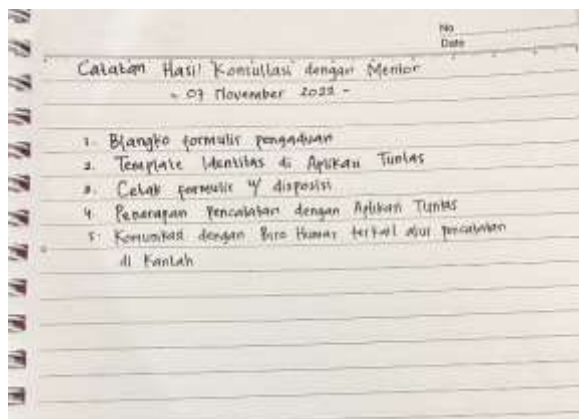 No
Date
Catatan Hasil Konsultasi dengan Mentor
- 07 November 2022 -
1. Blangko formulir pengaduan
2. Template Identitas di Aplikasi Tuntas
3. Cetak formulir u/ disposisi
4. Penerapan Pencatatan dengan Aplikasi Tuntas
5. Komunikasi dengan Biro Humas terkait alur pencatatan
di Kantah